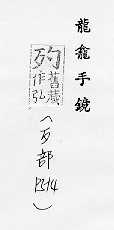 龍龕手鏡
歹
舊藏
作弘
(歹部
P514)